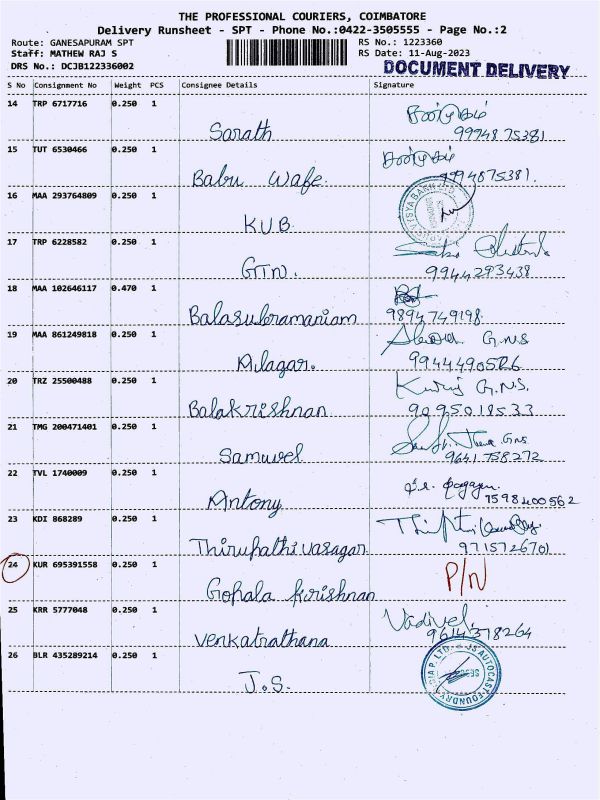 THE PROFESSIONAL COURIERS, COIMBATORE
Delivery Runsheet - SPT - Phone No.:0422-3505555 - Page No.:2
Route: GANESAPURAM SPT RS No.: 1223360
Staff: MATHEW RAJ S RS Date: 11-Aug-2023
DRS No.: DCJB122336002 DOCUMENT DELIVERY
S No Consignment No Weight PCS Consignee Details Signature
14 TRP 6717716 0.250 1
Sarath 99748 75381
15 TUT 6530466 0.250 1
Babu 9994875381.
16 MAA 293764809 0.250 1
KUB
17 TRP 6228582 0.250 1
GTN. 9944293438
18 MAA 102646117 0.470 1
Balasubramaniam 9894749198
19 MAA 861249818 0.250 1 G.N.S
Alagar. 9944490526
20 TRZ 25500488 0.250 1 G.N.S.
Balakrishnan 9095018533
21 TMG 200471401 0.250 1
Samuvel 9641758272
22 TVL 1740009 0.250 1
Antony 7598400562
23 KDI 868289 0.250 1
Thirupathi vasagar 9715726701
24 KUR 695391558 0.250 1 P/N
Gopala krishnan
25 KRR 5777048 0.250 1 Vadivel
venkatrathana 9614378264
26 BLR 435289214 0.250 1
J.S.